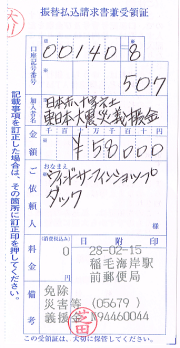 振替払込請求書兼受領証
口座記号番号
00140 8
507
加入者名
日本赤十字社
東日本大震災義援金
金額
千 百 十 万 千 百 十 円
¥58000
ご依頼人
おなまえ
ジェイド・サーフィンショップ
ダック
様
料金
(消費税込み)
0
円
日附印
28-02-15
稲毛海岸駅
前郵便局
備考
免除
災害等 (05679)
義援金 094460044
芝田
この受領証は、大切に保管してください。
記載事項を訂正した場合は、その箇所に訂正印を押してください。